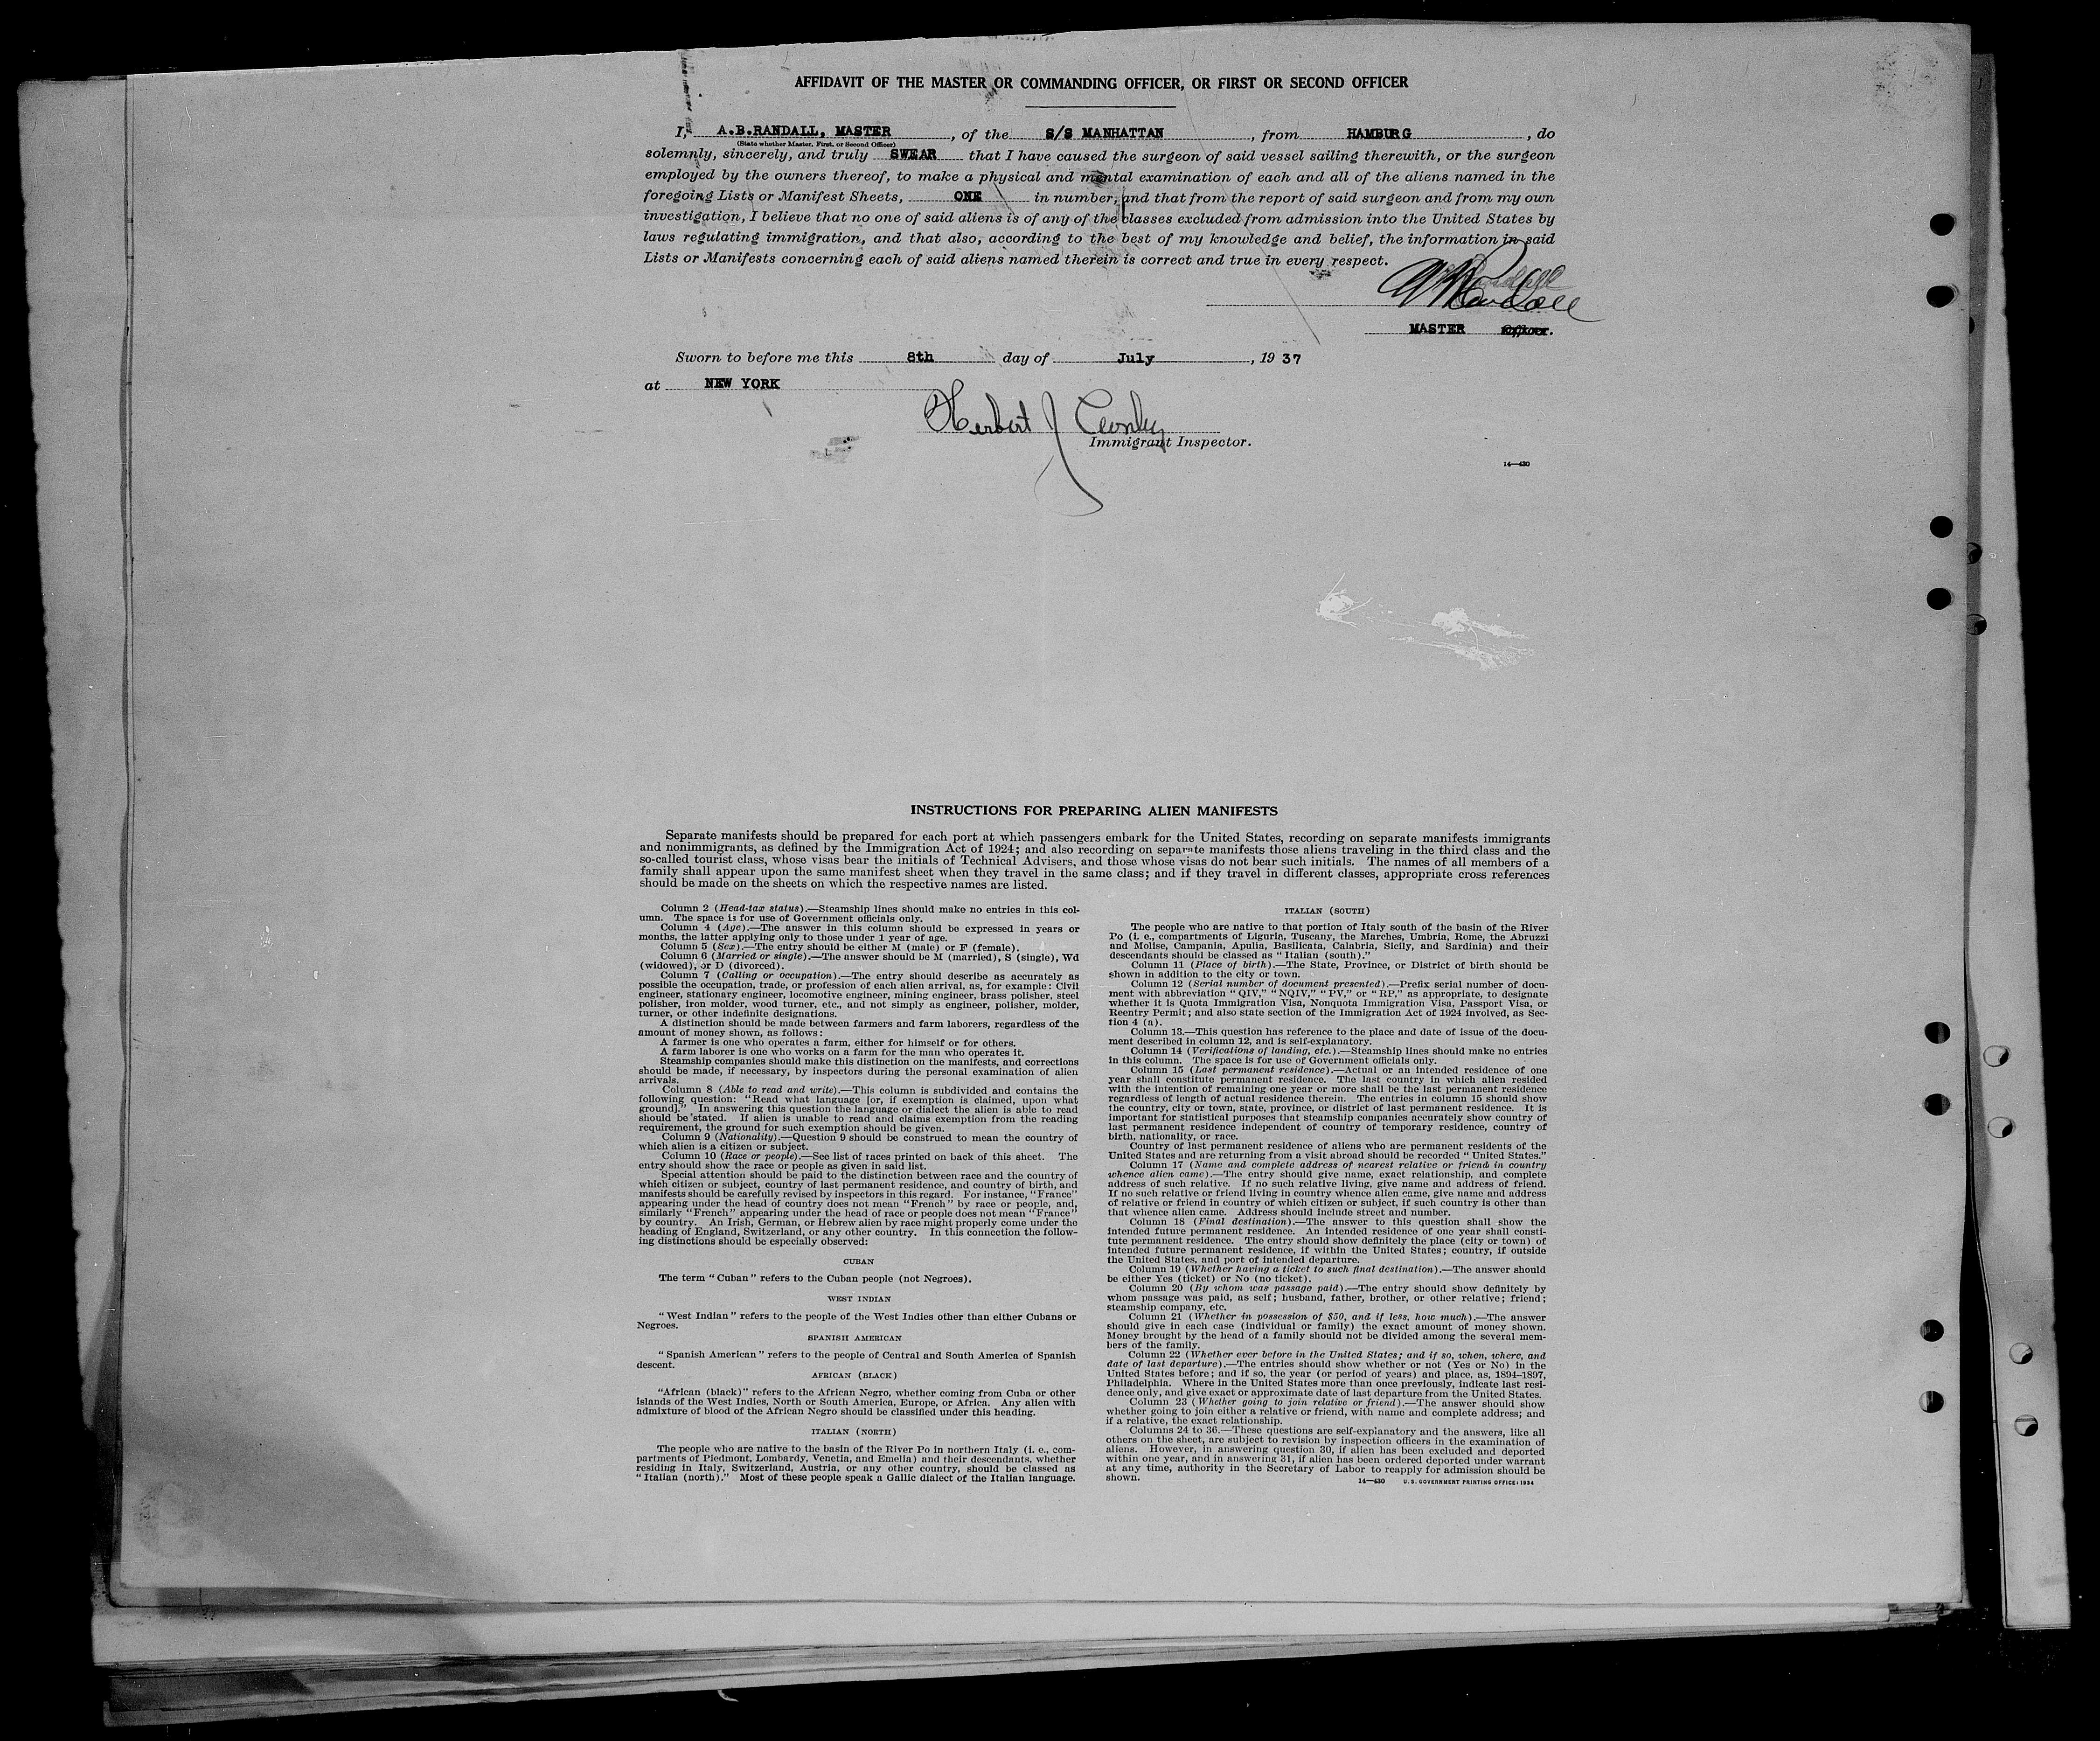 AFFIDAVIT OF THE MASTER OR COMMANDING OFFICER, OR FIRST OR SECOND OFFICER
I, A.B.RANDALL, MASTER, of the S/S MANHATTAN, from HAMBURG, do
(State whether Master, First, or Second Officer)
solemnly, sincerely, and truly SWEAR that I have caused the surgeon of said vessel sailing therewith, or the surgeon
employed by the owners thereof, to make a physical and mental examination of each and all of the aliens named in the
foregoing Lists or Manifest Sheets, ONE in number, and that from the report of said surgeon and from my own
investigation, I believe that no one of said aliens is of any of the classes excluded from admission into the United States by
laws regulating immigration, and that also, according to the best of my knowledge and belief, the information in said
Lists or Manifests concerning each of said aliens named therein is correct and true in every respect.
MASTER Officer.
Sworn to before me this 8th day of July, 19 37
at NEW YORK
Herbert J
Immigrant Inspector.
14—430
INSTRUCTIONS FOR PREPARING ALIEN MANIFESTS
Separate manifests should be prepared for each port at which passengers embark for the United States, recording on separate manifests immigrants
and nonimmigrants, as defined by the Immigration Act of 1924; and also recording on separate manifests those aliens traveling in the third class and the
so-called tourist class, whose visas bear the initials of Technical Advisers, and those whose visas do not bear such initials. The names of all members of a
family shall appear upon the same manifest sheet when they travel in the same class; and if they travel in different classes, appropriate cross references
should be made on the sheets on which the respective names are listed.
Column 2 (Head-tax status).—Steamship lines should make no entries in this col-
umn. The space is for use of Government officials only.
Column 4 (Age).—The answer in this column should be expressed in years or
months, the latter applying only to those under 1 year of age.
Column 5 (Sex).—The entry should be either M (male) or F (female).
Column 6 (Married or single).—The answer should be M (married), S (single), Wd
(widowed), or D (divorced).
Column 7 (Calling or occupation).—The entry should describe as accurately as
possible the occupation, trade, or profession of each alien arrival, as, for example: Civil
engineer, stationary engineer, locomotive engineer, mining engineer, brass polisher, steel
polisher, iron molder, wood turner, etc., and not simply as engineer, polisher, molder,
turner, or other indefinite designations.
A distinction should be made between farmers and farm laborers, regardless of the
amount of money shown, as follows:
A farmer is one who operates a farm, either for himself or for others.
A farm laborer is one who works on a farm for the man who operates it.
Steamship companies should make this distinction on the manifests, and corrections
should be made, if necessary, by inspectors during the personal examination of alien
arrivals.
Column 8 (Able to read and write).—This column is subdivided and contains the
following question: "Read what language [or, if exemption is claimed, upon what
ground]." In answering this question the language or dialect the alien is able to read
should be stated. If alien is unable to read and claims exemption from the reading
requirement, the ground for such exemption should be given.
Column 9 (Nationality).—Question 9 should be construed to mean the country of
which alien is a citizen or subject.
Column 10 (Race or people).—See list of races printed on back of this sheet. The
entry should show the race or people as given in said list.
Special attention should be paid to the distinction between race and the country of
which citizen or subject, country of last permanent residence, and country of birth, and
manifests should be carefully revised by inspectors in this regard. For instance, "France"
appearing under the head of country does not mean "French" by race or people, and,
similarly "French" appearing under the head of race or people does not mean "France"
by country. An Irish, German, or Hebrew alien by race might properly come under the
heading of England, Switzerland, or any other country. In this connection the follow-
ing distinctions should be especially observed:
CUBAN
The term "Cuban" refers to the Cuban people (not Negroes).
WEST INDIAN
"West Indian" refers to the people of the West Indies other than either Cubans or
Negroes.
SPANISH AMERICAN
"Spanish American" refers to the people of Central and South America of Spanish
descent.
AFRICAN (BLACK)
"African (black)" refers to the African Negro, whether coming from Cuba or other
islands of the West Indies, North or South America, Europe, or Africa. Any alien with
admixture of blood of the African Negro should be classified under this heading.
ITALIAN (NORTH)
The people who are native to the basin of the River Po in northern Italy (i. e., com-
partments of Piedmont, Lombardy, Venetia, and Emelia) and their descendants, whether
residing in Italy, Switzerland, Austria, or any other country, should be classed as
"Italian (north)." Most of these people speak a Gallic dialect of the Italian language.
ITALIAN (SOUTH)
The people who are native to that portion of Italy south of the basin of the River
Po (i. e., compartments of Liguria, Tuscany, the Marches, Umbria, Rome, the Abruzzi
and Molise, Campania, Apulia, Basilicata, Calabria, Sicily, and Sardinia) and their
descendants should be classed as "Italian (south)."
Column 11 (Place of birth).—The State, Province, or District of birth should be
shown in addition to the city or town.
Column 12 (Serial number of document presented).—Prefix serial number of docu-
ment with abbreviation "QIV," "NQIV," "PV," or "RP," as appropriate, to designate
whether it is Quota Immigration Visa, Nonquota Immigration Visa, Passport Visa, or
Reentry Permit; and also state section of the Immigration Act of 1924 involved, as Sec-
tion 4 (a).
Column 13.—This question has reference to the place and date of issue of the docu-
ment described in column 12, and is self-explanatory.
Column 14 (Verifications of landing, etc.).—Steamship lines should make no entries
in this column. The space is for use of Government officials only.
Column 15 (Last permanent residence).—Actual or an intended residence of one
year shall constitute permanent residence. The last country in which alien resided
with the intention of remaining one year or more shall be the last permanent residence
regardless of length of actual residence therein. The entries in column 15 should show
the country, city or town, state, province, or district of last permanent residence. It is
important for statistical purposes that steamship companies accurately show country of
last permanent residence independent of country of temporary residence, country of
birth, nationality, or race.
Country of last permanent residence of aliens who are permanent residents of the
United States and are returning from a visit abroad should be recorded "United States."
Column 17 (Name and complete address of nearest relative or friend in country
whence alien came).—The entry should give name, exact relationship, and complete
address of such relative. If no such relative living, give name and address of friend.
If no such relative or friend living in country whence alien came, give name and address
of relative or friend in country of which citizen or subject, if such country is other than
that whence alien came. Address should include street and number.
Column 18 (Final destination).—The answer to this question shall show the
intended future permanent residence. An intended residence of one year shall consti-
tute permanent residence. The entry should show definitely the place (city or town) of
intended future permanent residence, if within the United States; country, if outside
the United States, and port of intended departure.
Column 19 (Whether having a ticket to such final destination).—The answer should
be either Yes (ticket) or No (no ticket).
Column 20 (By whom was passage paid).—The entry should show definitely by
whom passage was paid, as self; husband, father, brother, or other relative; friend;
steamship company, etc.
Column 21 (Whether in possession of $50, and if less, how much).—The answer
should give in each case (individual or family) the exact amount of money shown.
Money brought by the head of a family should not be divided among the several mem-
bers of the family.
Column 22 (Whether ever before in the United States; and if so, when, where, and
date of last departure).—The entries should show whether or not (Yes or No) in the
United States before; and if so, the year (or period of years) and place, as, 1894–1897,
Philadelphia. Where in the United States more than once previously, indicate last resi-
dence only, and give exact or approximate date of last departure from the United States.
Column 23 (Whether going to join relative or friend).—The answer should show
whether going to join either a relative or friend, with name and complete address; and
if a relative, the exact relationship.
Columns 24 to 36.—These questions are self-explanatory and the answers, like all
others on the sheet, are subject to revision by inspection officers in the examination of
aliens. However, in answering question 30, if alien has been excluded and deported
within one year, and in answering 31, if alien has been ordered deported under warrant
at any time, authority in the Secretary of Labor to reapply for admission should be
shown.
14—430 U.S. GOVERNMENT PRINTING OFFICE: 1934